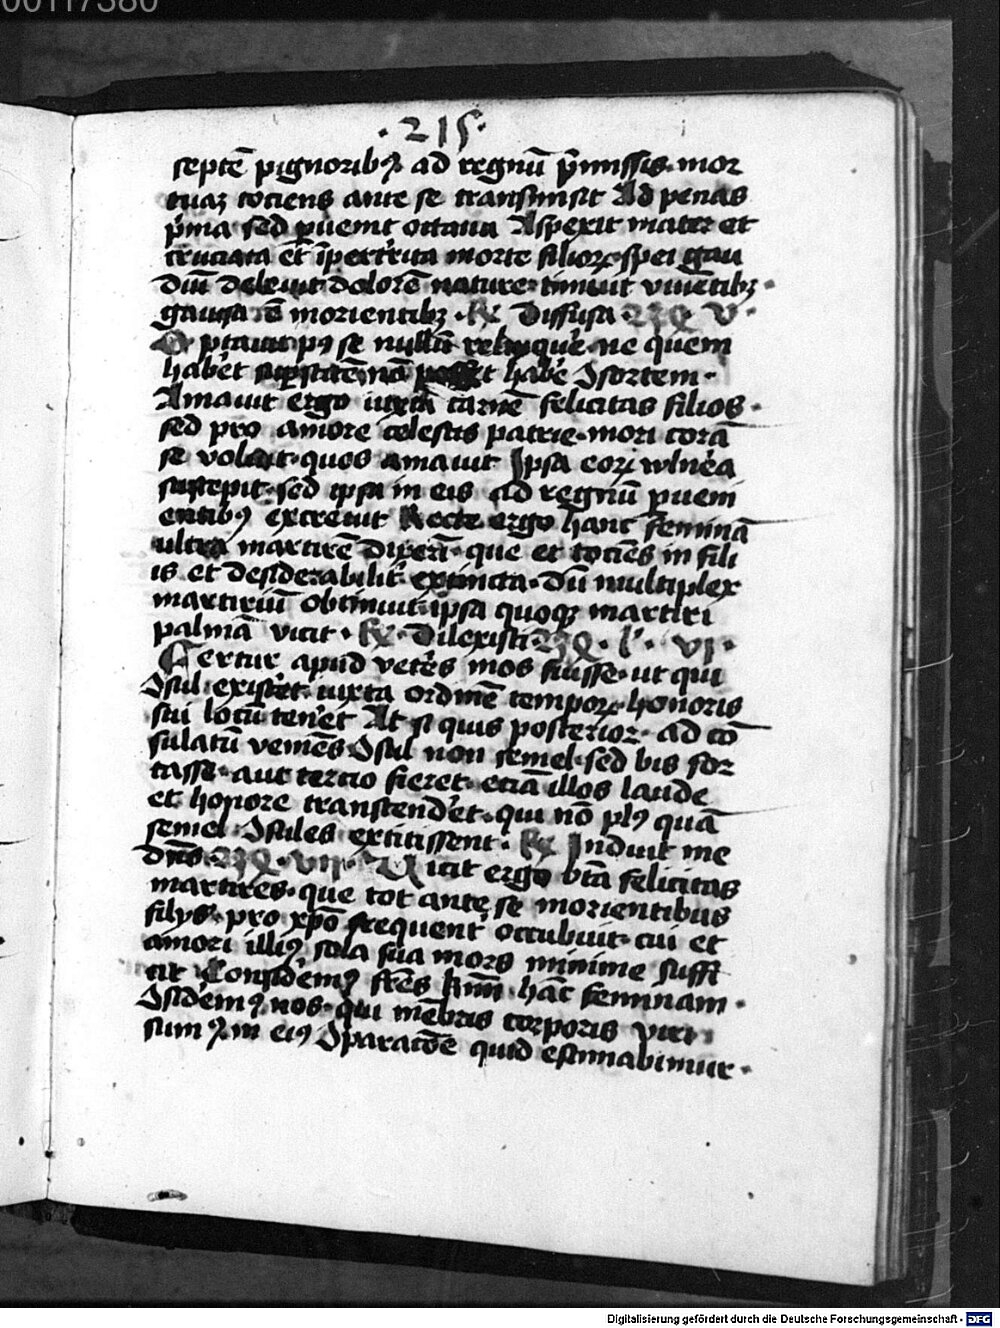 00117380
·215·
septē pignoribꝫ ad regnū p̄missis mor
tuaꝫ tociens ante se transmisit Ad penas
p̄ma sed puenit octaua Aspexit mater et
cruciata et īpert'rita morte filioꝝ spei gau
diū dolorē nature timuit viuētibꝫ
gauisa ē morientibꝫ · ℟ Diffusa V ·
ptauit p⁹ se nullū relinque' ne quem
hab'et sup̄stitē nō posset habe' ɔsortem ·
Amauit ergo iuxta carnē felicitas filios ·
sed pro amore celestis patrie mori corā
se voluit quos amauit Ipsa eoꝝ vln'a
suscepit sed ipsa in eis ad regnū pueni
entib⁹ excreuit Recte ergo hanc feminā
ultra martirē dixeri · que et tociēs in fili
is et desiderabilit' extincta · dū multiplex
martiriū obtinuit ipsa quoqꝫ martiri
palmā vicit · ℟ · Dilexisti · l' · vi ·
Fertur apud vete's mos fuisse ut qui
ɔsul existe't iuxta ordinē tempoꝝ honoris
sui locū ten'et At si quis posterior ad cō
sulatū veniēs ɔsul non semel sed bis for
tasse aut tercio fieret etiā illos laude
et honore transcend'et qui nō pl⁹ quā
semel ɔsules extitissent · ℟ Induit me
dn̄s · vii · Vicit ergo b̄ta felicitas
martires que tot ante se morientibus
filijs pro xp̄o frequent' occubuit cui et
amori illi⁹ sola sua mors minime suffi
cit Consid'em⁹ fr̄es k̄mi hāc feminam ·
ɔsid'em⁹ nos qui mēbris corporis viri
sum⁹ in ei⁹ ɔparatōe quid estimabimur ·
Digitalisierung gefördert durch die Deutsche Forschungsgemeinschaft - DFG